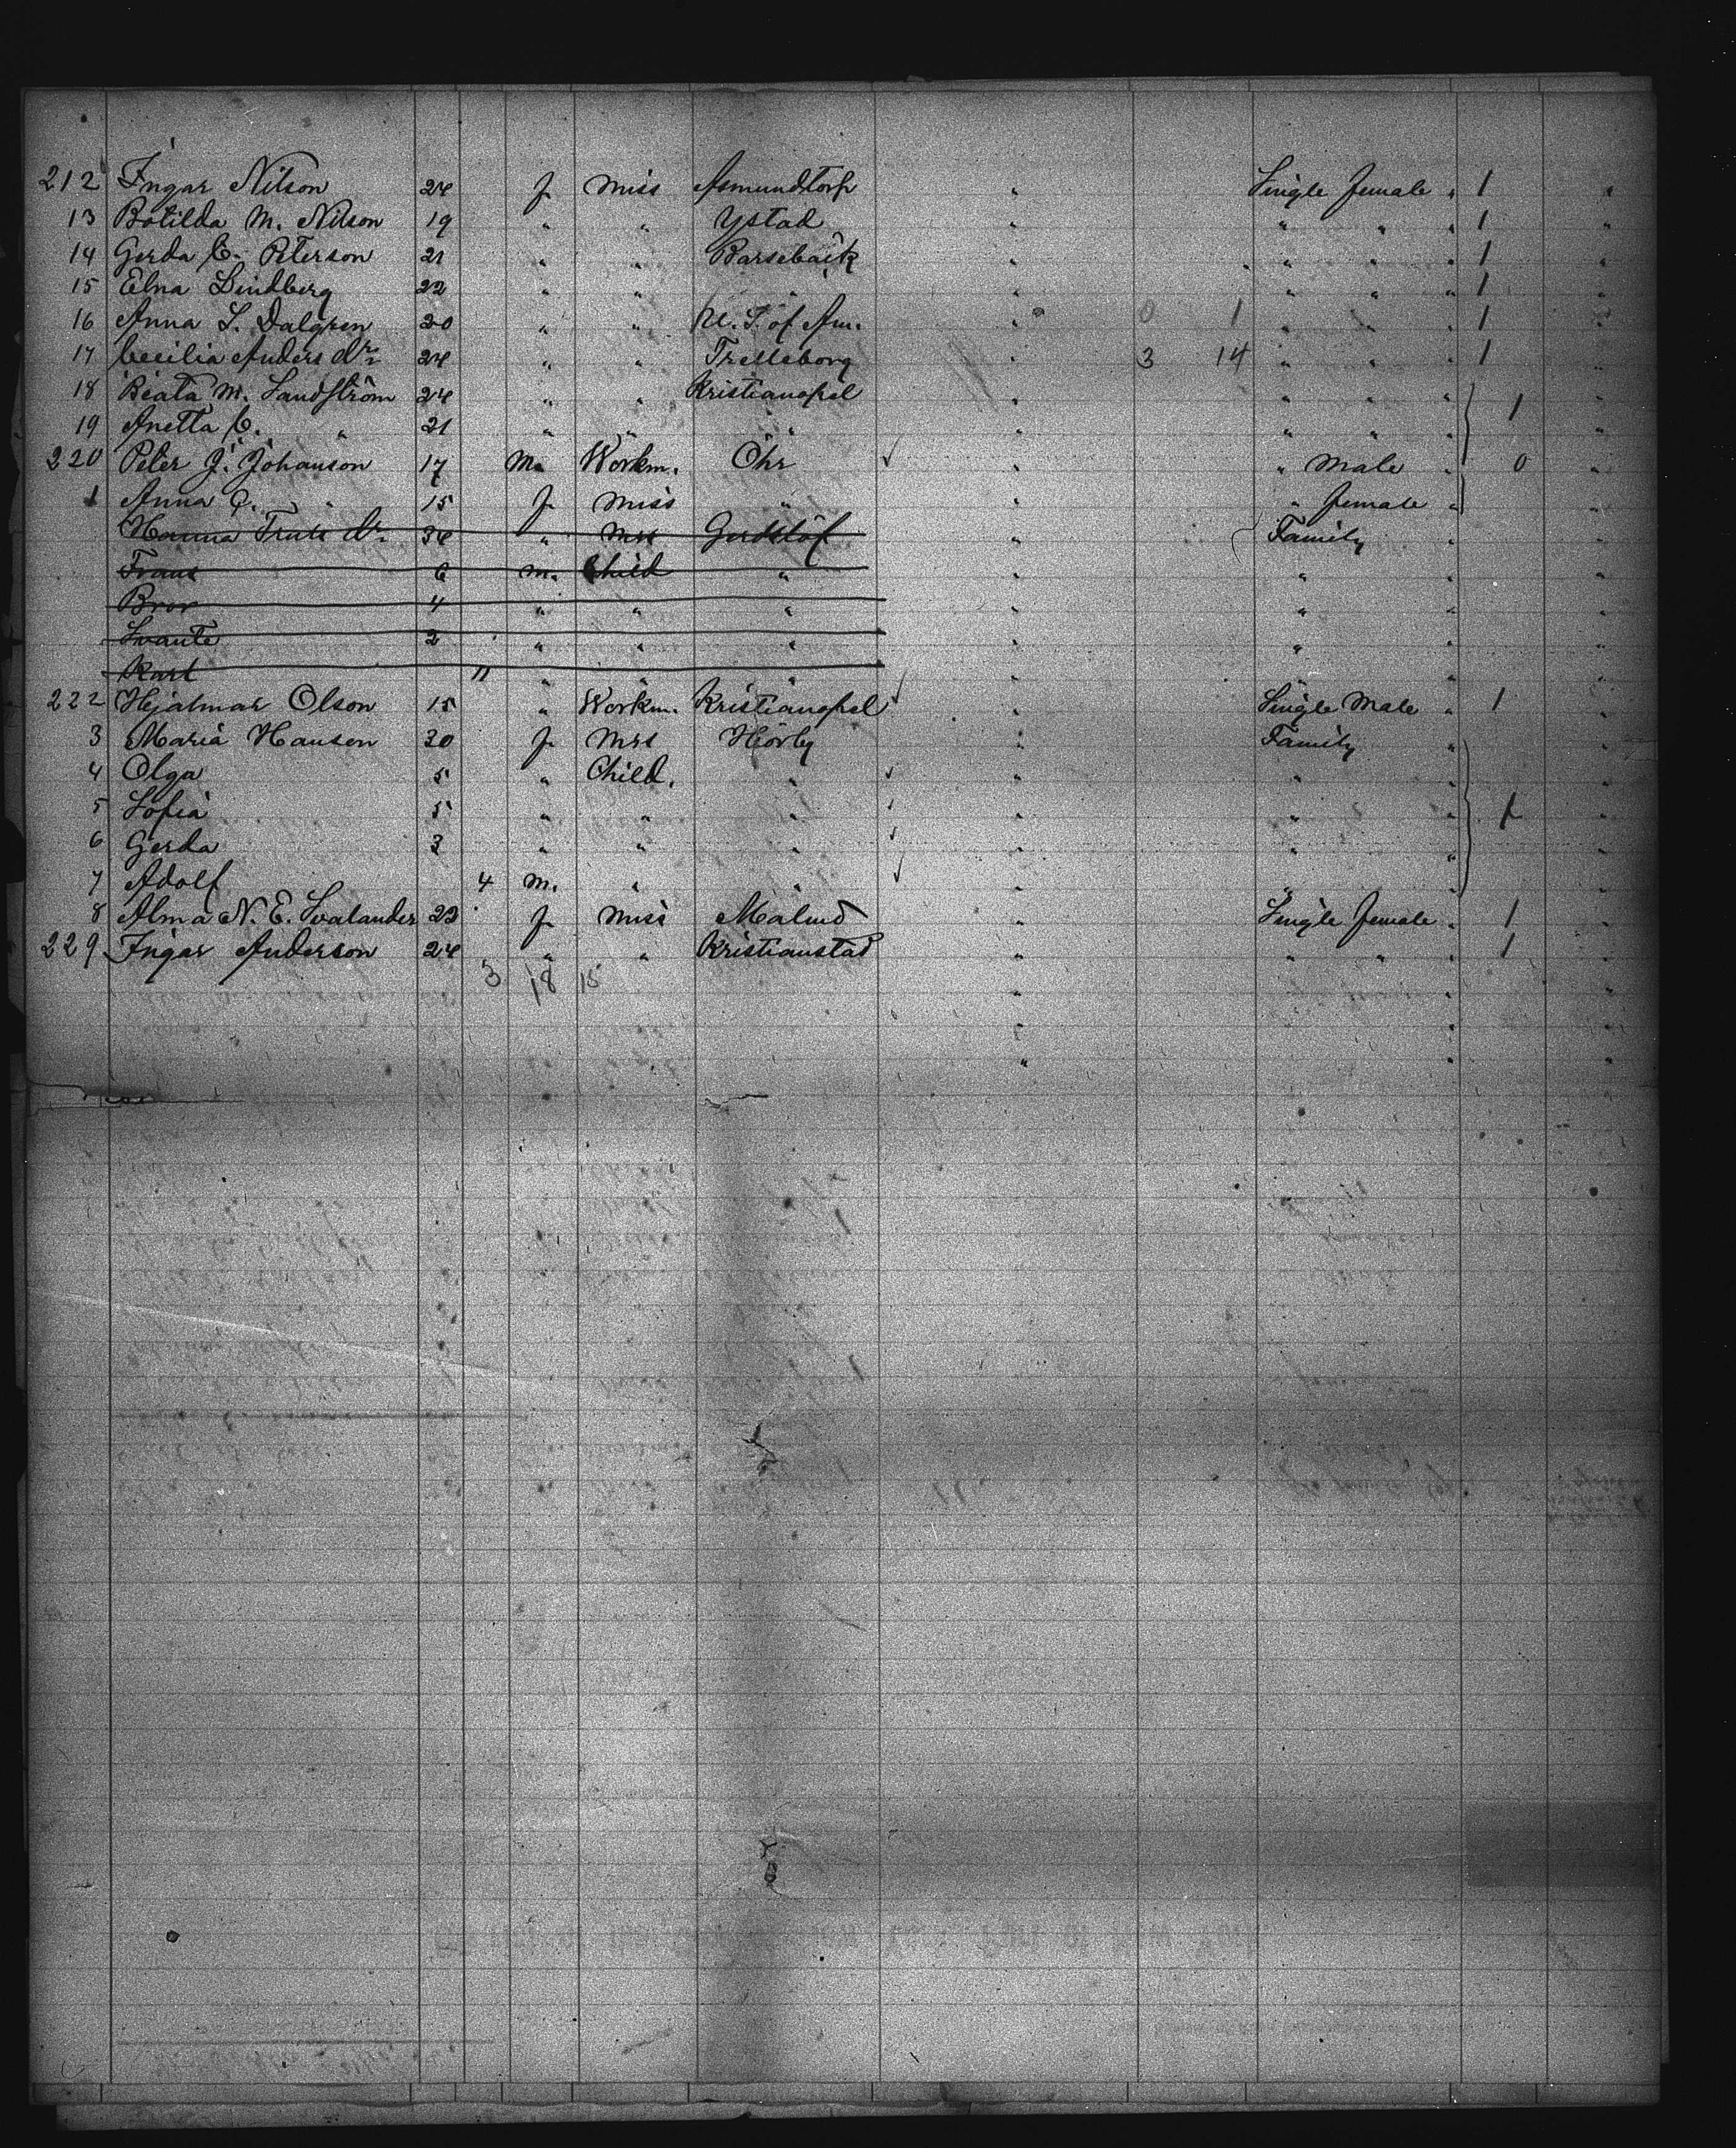 212 Ingar Nilson 24 f. Miss Asmundtorp " Single female " 1 "
13 Botilda M. Nilson 19 " " Ystad " " " " 1 "
14 Gerda C. Peterson 21 " " Barsebäck " " " " 1 "
15 Elna Lindberg 22 " " " " " " " 1 "
16 Anna S. Dalgren 20 " " U. S. of Am. " 0 1 " " " 1 "
17 Cecilia Anders dr. 24 " " Trelleborg " 3 14 " " " 1 "
18 Beata M. Sandström 24 " " Kristianopel " " " " "
19 Anetta C. " 21 " " " " " " " 1 "
220 Peter J. Johanson 17 M. Workm. Öhr " " Male " 0 "
1 Anna C. " 15 f. Miss " " " female "
Hanna Truls dr. 34 " Mrs " Family " "
Frans 6 m. Child " " " " "
Bror 4 " " " " " " "
Svante 2 " " " " " " "
Karl 11 " " " " " " "
222 Hjalmar Olson 15 " Workm. Kristianopel " Single Male " 1 "
3 Maria Hansen 30 f. Mrs Hörby " Family " "
4 Olga 5 " Child. " " " " "
5 Sofia 5 " " " " " " 1 "
6 Gerda 3 " " " " " " "
7 Adolf 4 m. " " " " " "
8 Alma N. E. Svalander 22 f. Miss Malmö " Single female " 1 "
229 Ingar Anderson 24 " " Kristianstad " " " " 1 "
3 18 15 " " "